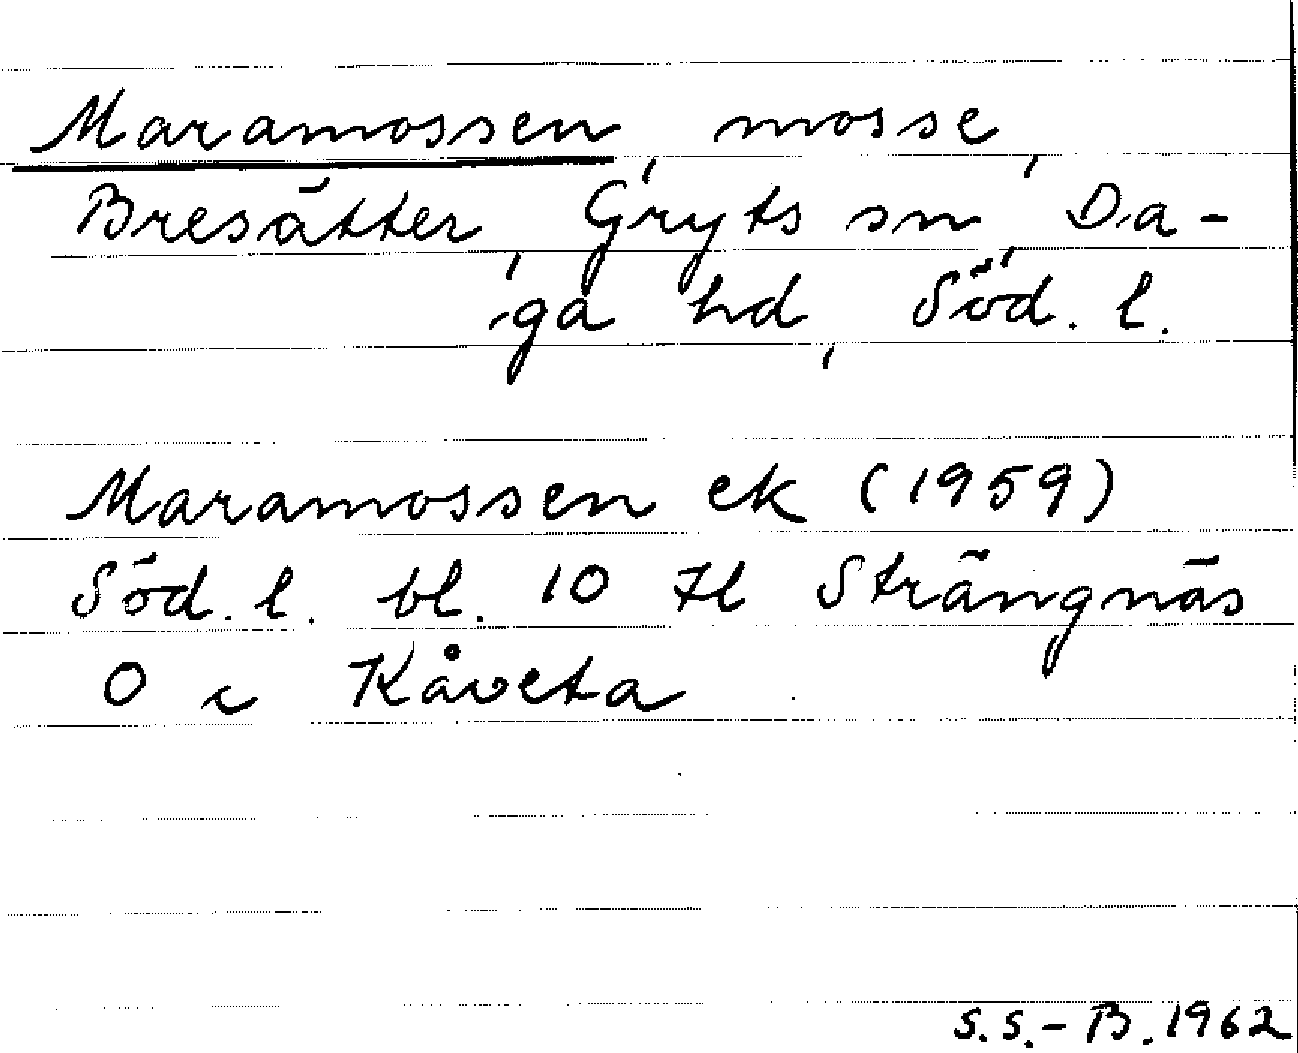 Maramossen, mosse,
Bresätter, Gryts sn, Da-
ga hd, Söd. l.
Maramossen ek (1959)
Söd. l. bl. 10 H Strängnäs
O c Kåveta
S.S.-B. 1962